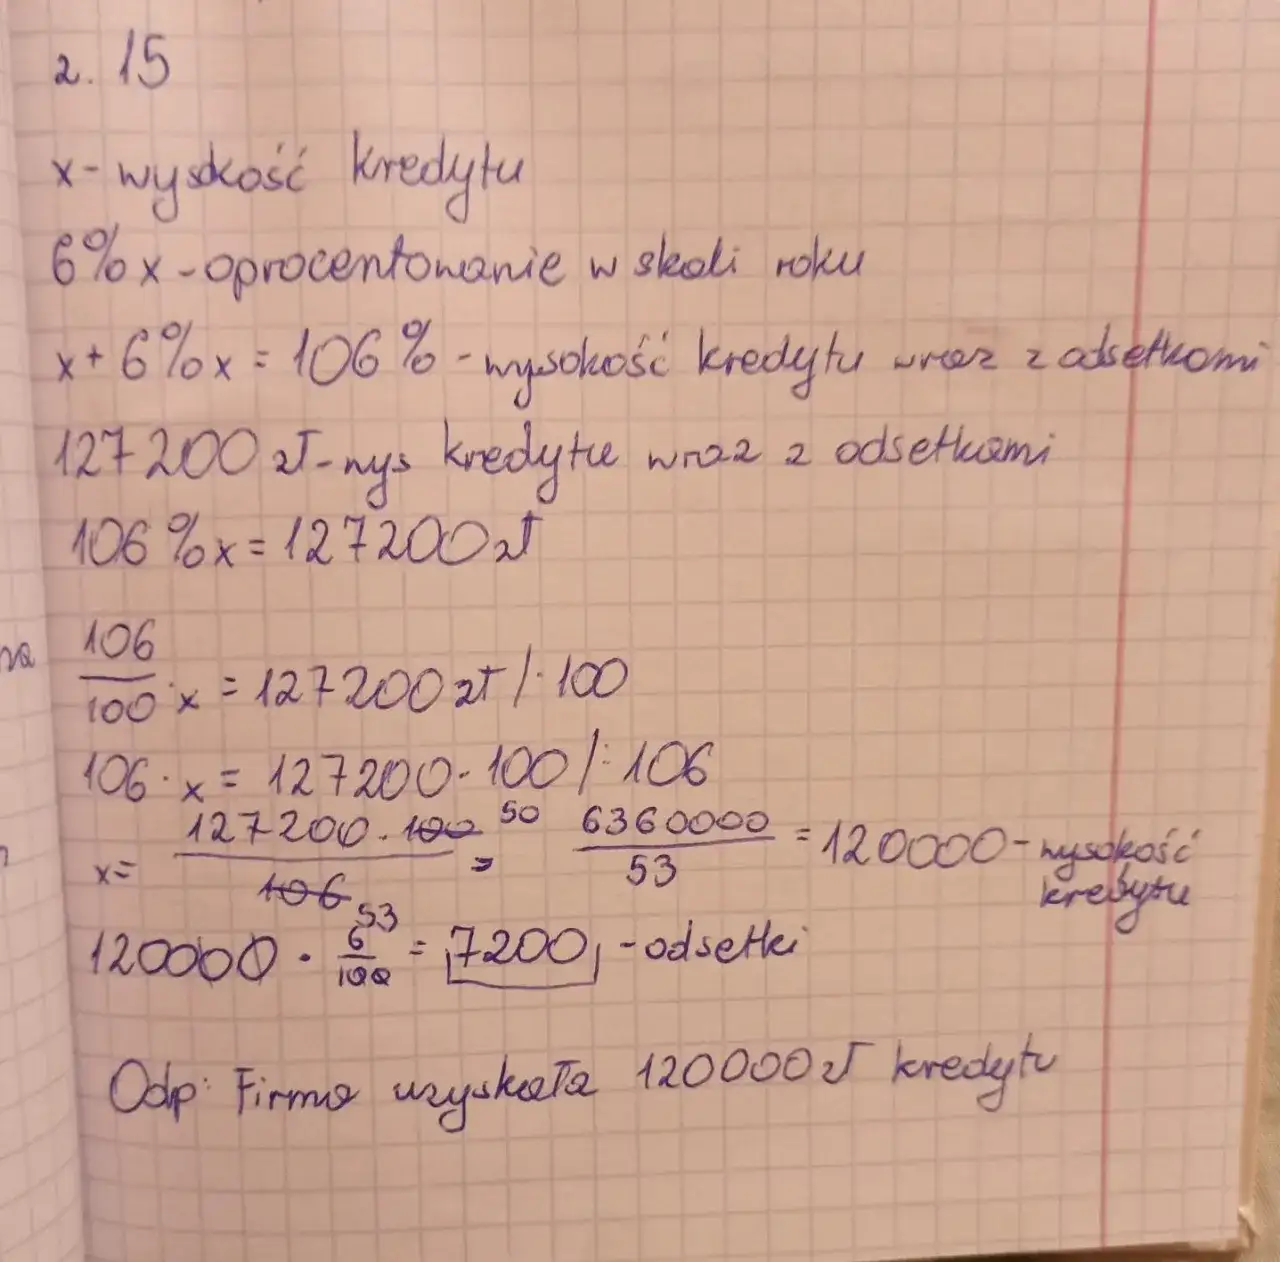 2. 15
x - wyskość kredytu
6% x - oprocentowanie w skali roku
x + 6% x = 106% - wysokość kredytu wraz z odsetkami
127200 zł - wys kredytu wraz z odsetkami
106% x = 127200 zł
106/100 · x = 127200 zł /· 100
106 · x = 127200 · 100 /: 106
x = 127200 · 100 50 / 106 53 = 6360000/53 = 120000 - wysokość kredytu
120000 · 6/100 = 7200 - odsetki
Odp: Firma uzyskała 120000 zł kredytu